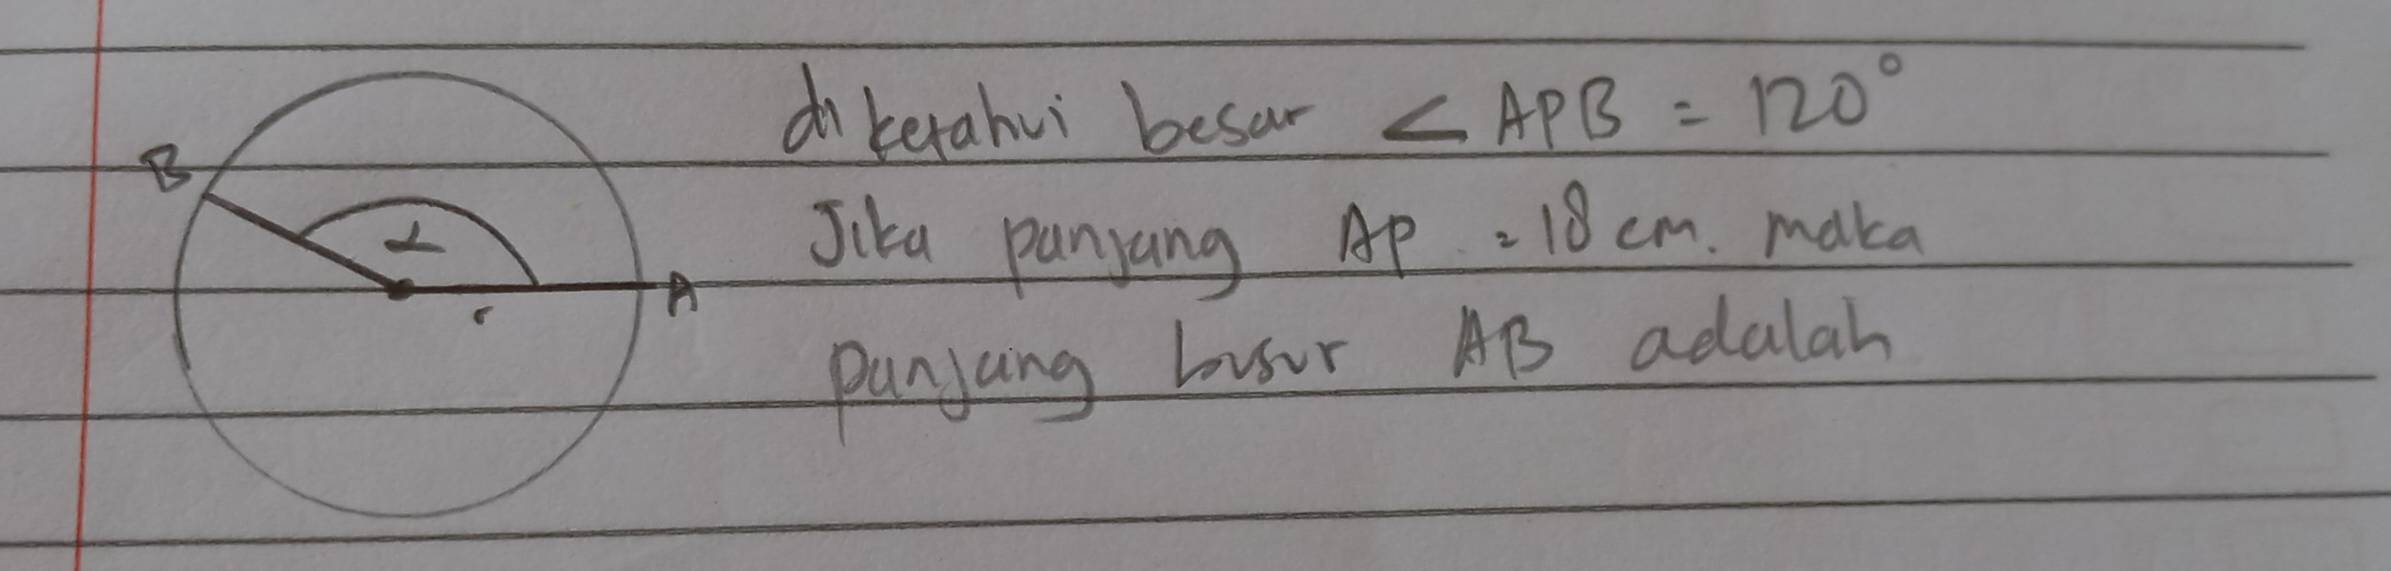 B
α
r
A
diketahui besar < APB = 120°
Jika panjang AP = 18 cm. maka
panjang busur AB adalah